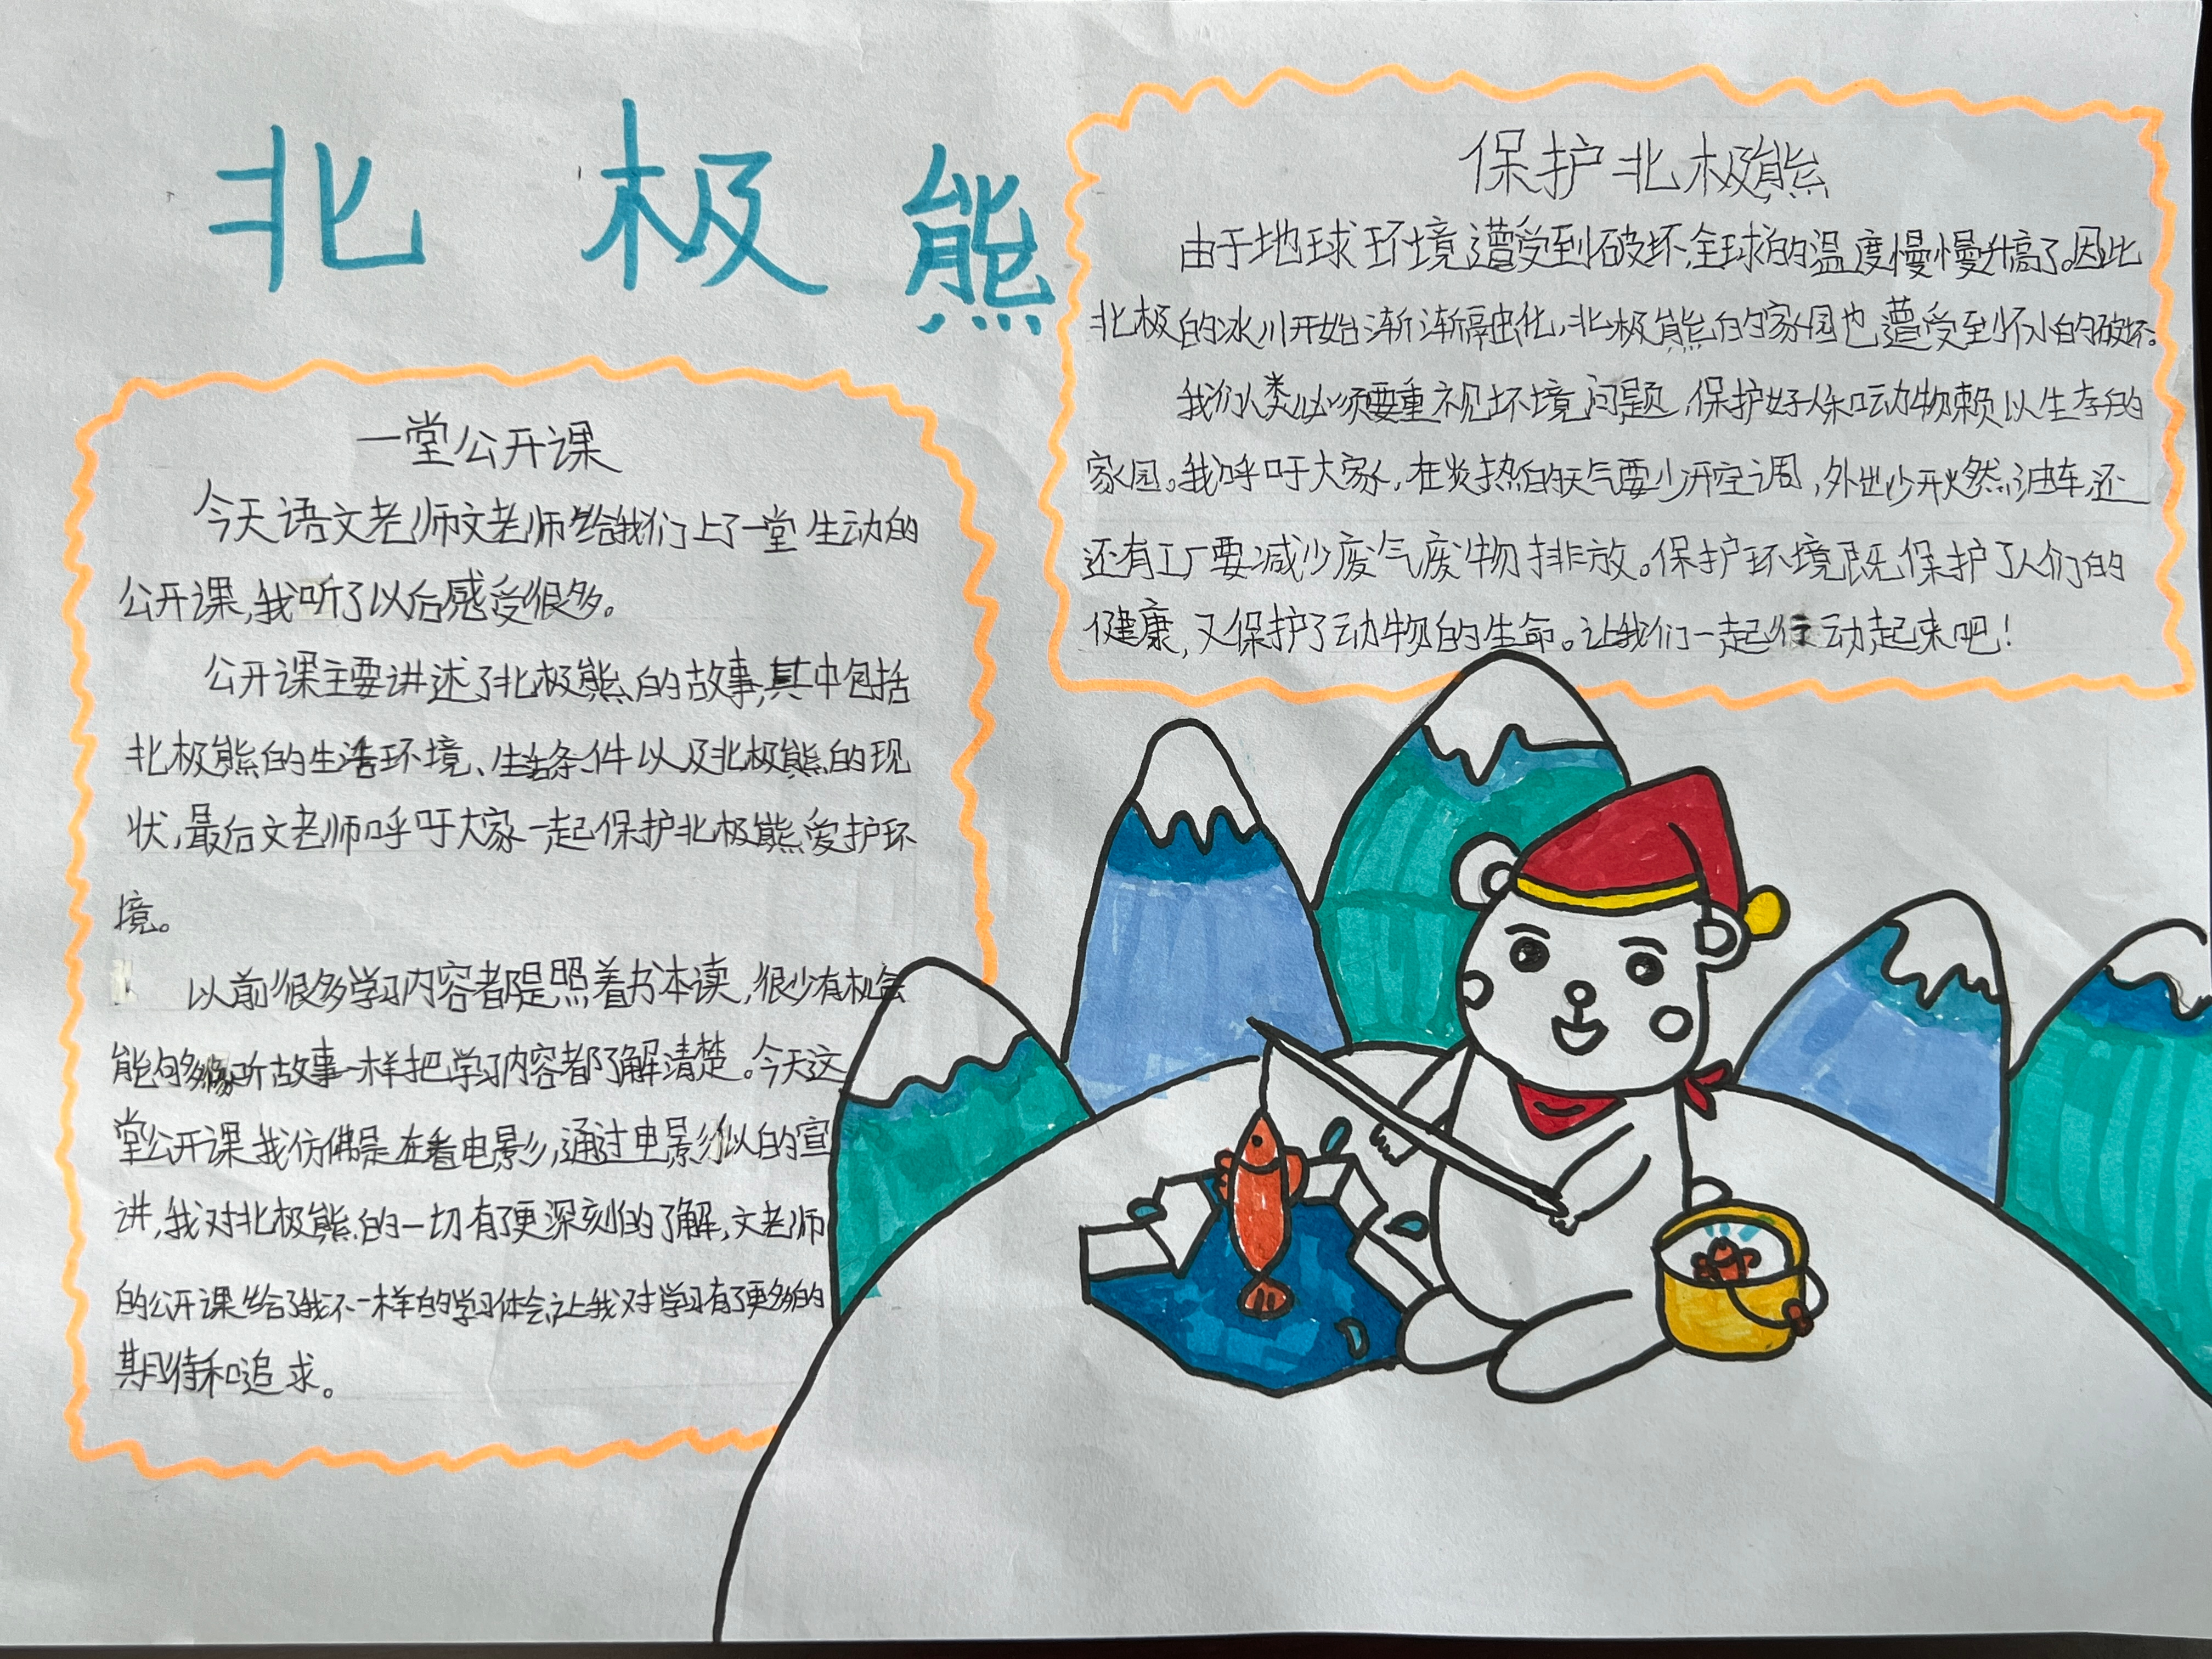 北极熊
一堂公开课
今天语文老师文老师给我们上了一堂生动的
公开课,我听了以后感受很多。
公开课主要讲述了北极熊的故事,其中包括
北极熊的生活环境、生活条件以及北极熊的现
状,最后文老师呼吁大家一起保护北极熊爱护环
境。
以前很多学习内容都是照着书本读,很少有机会
能够像听故事一样把学习内容都了解清楚。今天这
堂公开课我仿佛是在看电影,通过电影似的宣
讲,我对北极熊的一切有了更深刻的了解,文老师
的公开课给了我不一样的学习体会,让我对学习有了更多的
期待和追求。
保护北极熊
由于地球环境遭受到破坏,全球的温度慢慢升高了。因此
北极的冰川开始渐渐融化,北极熊的家园也遭受到不小的破坏。
我们人类必须要重视环境问题,保护好人和动物赖以生存的
家园。我呼吁大家,在炎热的天气要少开空调,外出少开燃油车,还
还有工厂要减少废气废物排放。保护环境既保护了人们的
健康,又保护了动物的生命。让我们一起行动起来吧!